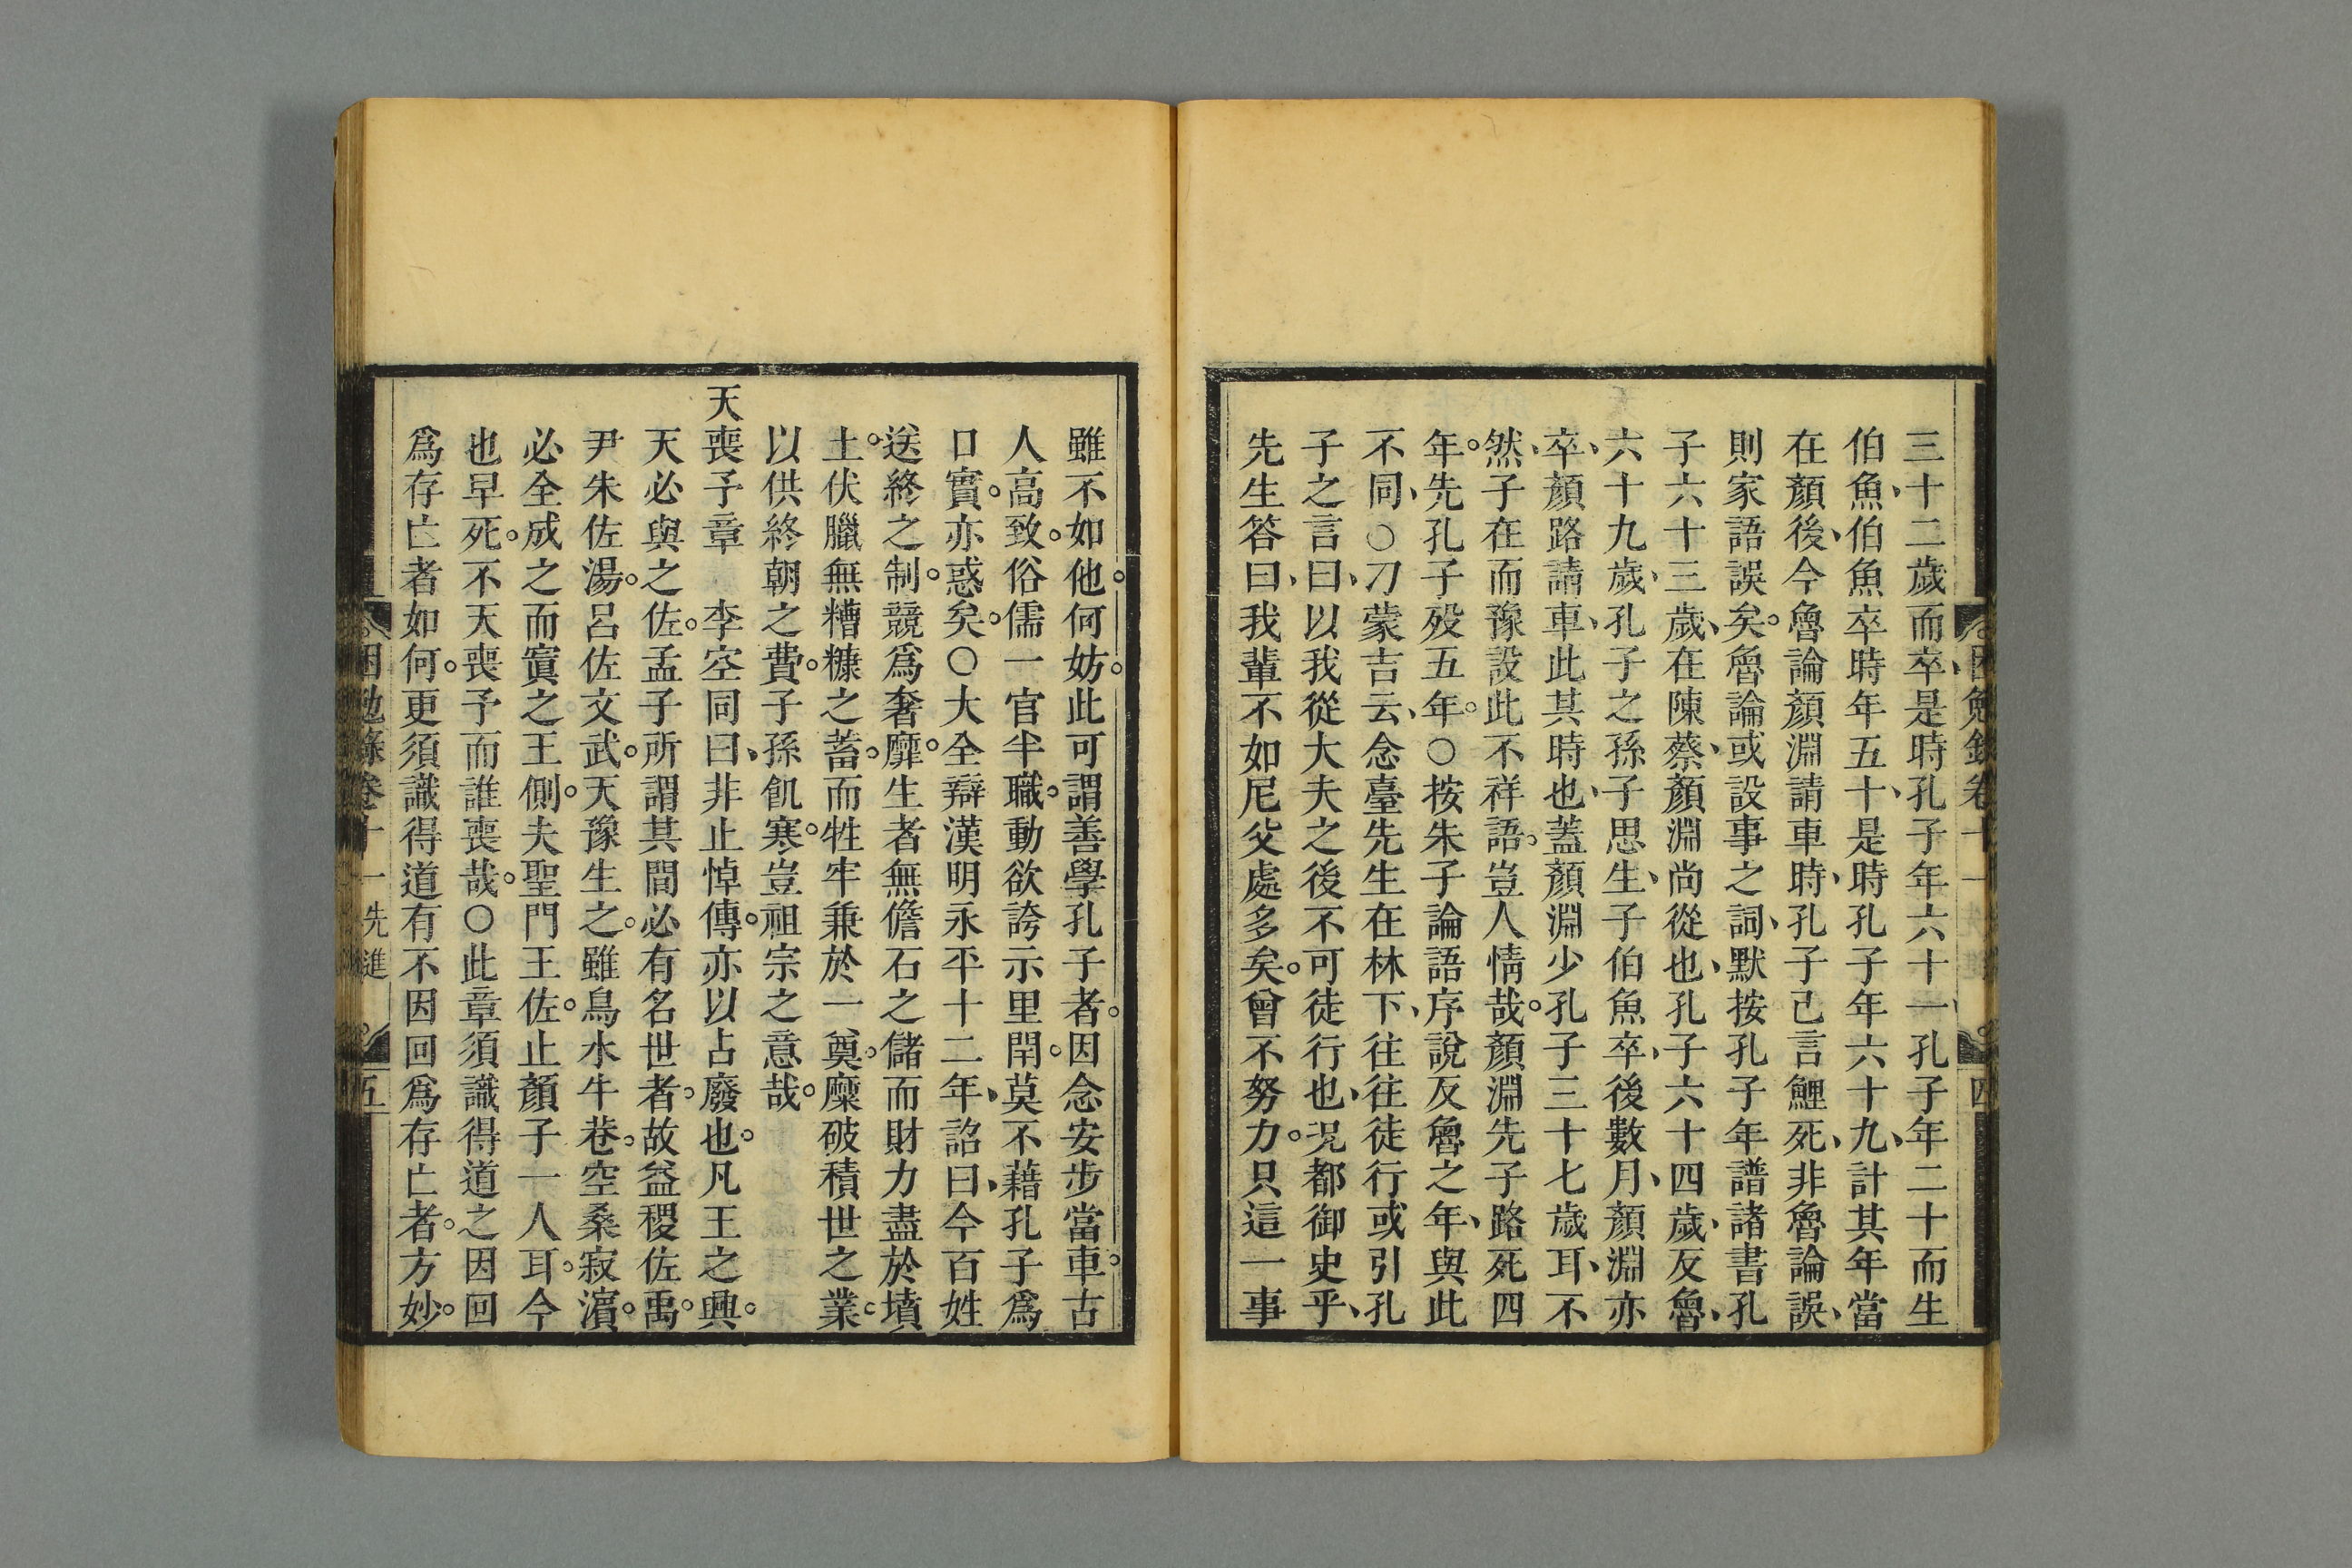 三十二歲而卒、是時孔子年六十一孔子年二十而生
伯魚、伯魚卒時年五十、是時孔子年六十九、計其年當
在顏後、今魯論顏淵請車時、孔子己言鯉死、非魯論誤、
則家語誤矣。魯論或設事之詞、默按孔子年譜諸書孔
子六十三歲、在陳蔡、顏淵尚從也、孔子六十四歲、反魯、
六十九歲、孔子之孫子思生、子伯魚卒、後數月、顏淵亦
卒、顏路請車、此其時也、蓋顏淵少孔子三十七歲耳、不
然、子在而豫設此不祥語。豈人情哉。顏淵先子路死四
年。先孔子歿五年。○按朱子論語序說反魯之年、與此
不同、○刀蒙吉云、念臺先生在林下、往往徒行或引孔
子之言曰、以我從大夫之後不可徒行也、况都御史乎、
先生答曰、我輩不如尼父處多矣。曾不努力。只這一事
困勉錄卷十一 四
雖不如他。何妨。此可謂善學孔子者。因念安步當車。古
人高致。俗儒一官半職。動欲誇示里閈。莫不藉孔子爲
口實。亦惑矣。○大全辯漢明永平十二年、詔曰、今百姓
送終之制。競爲奢靡。生者無儋石之儲而財力盡於墳
土。伏臘無糟糠之蓄。而牲牢兼於一奠。糜破積世之業。
以供終朝之費。子孫飢寒。豈祖宗之意哉。
天喪予章 李空同曰、非止悼傳。亦以占廢也。凡王之興。
天必與之佐。孟子所謂其間必有名世者。故益稷佐禹。
尹朱佐湯。呂佐文武。天豫生之。雖鳥水牛巷。空桑寂濱。
必全成之而寘之王側。夫聖門王佐。止顏子一人耳。今
也早死。不天喪予而誰喪哉。○此章須識得道之因回
爲存亡者如何。更須識得道有不因回爲存亡者。方妙。
困勉錄卷十一 先進 五